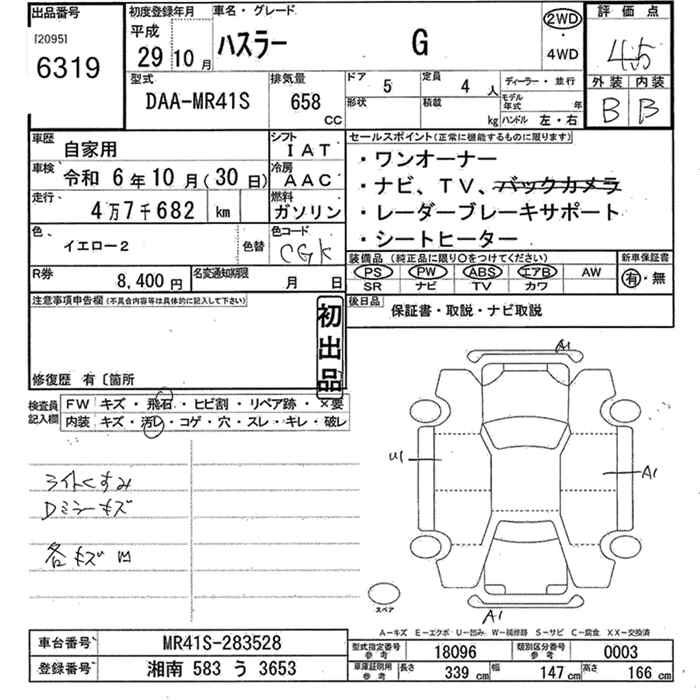 出品番号
[2095]
6319
初度登録年月
平成
29年10月
車名・グレード
ハスラー G
2WD
・
4WD
評価点
4.5
型式
DAA-MR41S
排気量
658
CC
ドア 5
定員 4人
形状
積載 kg
ディーラー・並行
モデル年式 年
ハンドル 左・右
外装 内装
B B
車歴 自家用
シフト IAT
車検 令和 6年10月(30日)
冷房 AAC
走行 4万7千682 km
燃料 ガソリン
色 イエロー2
色替
色コード CGK
セールスポイント(正常に機能するものに限ります)
・ワンオーナー
・ナビ、TV、バックカメラ
・レーダーブレーキサポート
・シートヒーター
装備品(純正品に限り○をつけてください)
PS PW ABS エアB AW
SR ナビ TV カワ
新車保証書
有・無
R券 8,400円
名変通知期限 月 日
後日品 保証書・取説・ナビ取説
注意事項申告欄(不具合内容等は具体的に記入して下さい)
初出品
修復歴 有〔箇所
検査員記入欄
FW キズ・飛石・ヒビ割・リペア跡・×要
内装 キズ・汚レ・コゲ・穴・スレ・キレ・破レ
ライトくすみ
Dミラーキズ
各キズ凹
A1
U1
A1
A1
スペア
A-キズ E-エクボ U-凹み W-補修跡 S-サビ C-腐食 XX-交換済
車台番号 MR41S-283528
型式指定番号参考 18096
類別区分番号参考 0003
登録番号 湘南 583 う 3653
車庫証明用参考 長さ 339cm 幅 147cm 高さ 166cm